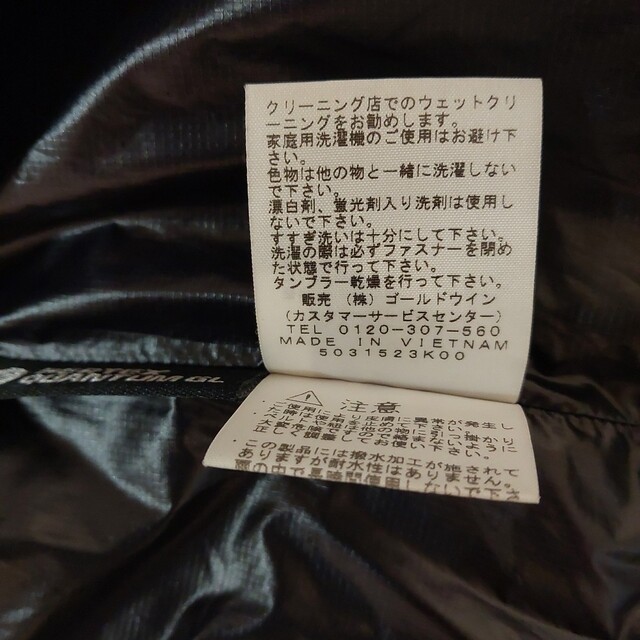 クリーニング店でのウェットクリ
ーニングをお勧めします。
家庭用洗濯機のご使用はお避け下
さい。
色物は他の物と一緒に洗濯しない
で下さい。
漂白剤、蛍光剤入り洗剤は使用し
ないで下さい。
すすぎ洗いは十分にして下さい。
洗濯の際は必ずファスナーを閉め
た状態で行って下さい。
タンブラー乾燥を行って下さい。
販売 (株) ゴールドウイン
(カスタマーサービスセンター)
TEL 0120-307-560
MADE IN VIETNAM
5031523K00
QUANTUM GL
注意
・この製品には撥水加工が施されて
ありますが耐水性はありません。
雨の中で長時間使用しないで下さ